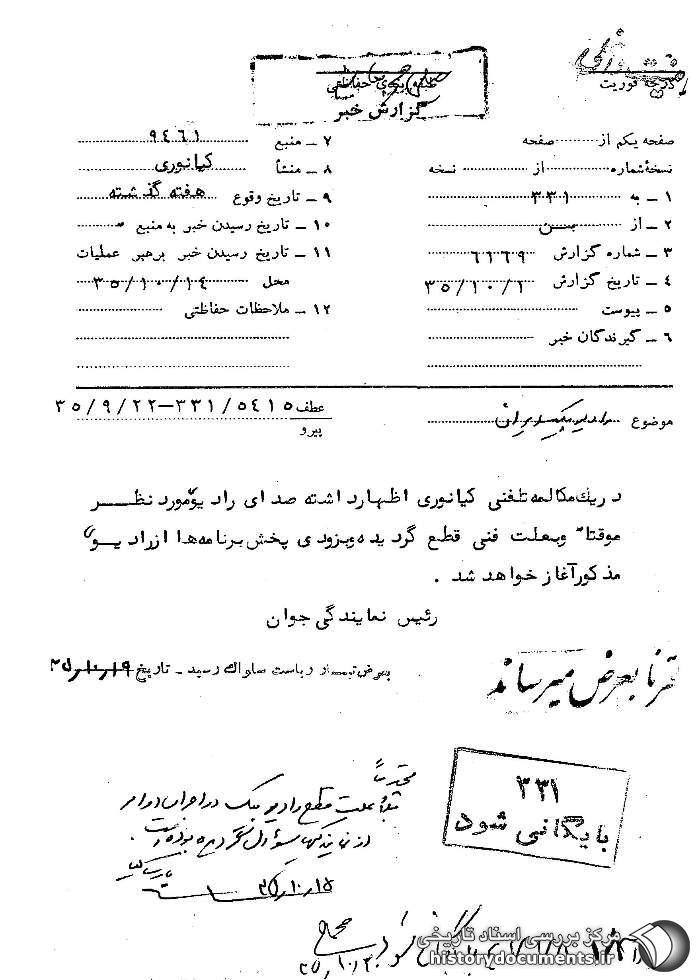 درجه فوریت
گزارش خبر
صفحه یکم از صفحه
نسخهٔ شماره از نسخه
۱ – به ۳۳۱
۲ – از بسن
۳ – شماره گزارش ۶۱۶۹
۴ – تاریخ گزارش ۳۵/۱۰/۱
۵ – پیوست
۶ – گیرندگان خبر
۷ – منبع ۹۴۶۱
۸ – منشأ کیانوری
۹ – تاریخ وقوع هفته گذشته
۱۰ – تاریخ رسیدن خبر به منبع
۱۱ – تاریخ رسیدن خبر برهبر عملیات
محل ۳۵/۱۰/۱۴
۱۲ – ملاحظات حفاظتی
موضوع رادیو پیک ایران
عطف ۳۵/۹/۲۲–۳۳۱/۵۴۱۵
پیرو
در یک مکالمه تلفنی کیانوری اظهار داشته صدای رادیو مورد نظر
موقتاً و بعلت فنی قطع گردیده و بزودی پخش برنامه ها از رادیوی
مذکور آغاز خواهد شد .
رئیس نمایندگی جوان
بعرض تیمسار ریاست ساواک رسید – تاریخ ۳۵/۱۰/۱۹
شرفا بعرض میرساند
محترماً
علت قطع رادیو پیک در اجرای اوامر
از نمایندگی مسئول
۳۵/۱۰/۱۵
۳۳۱
بایگانی شود
بایگانی شود
مرکز بررسی اسناد تاریخی
historydocuments.ir